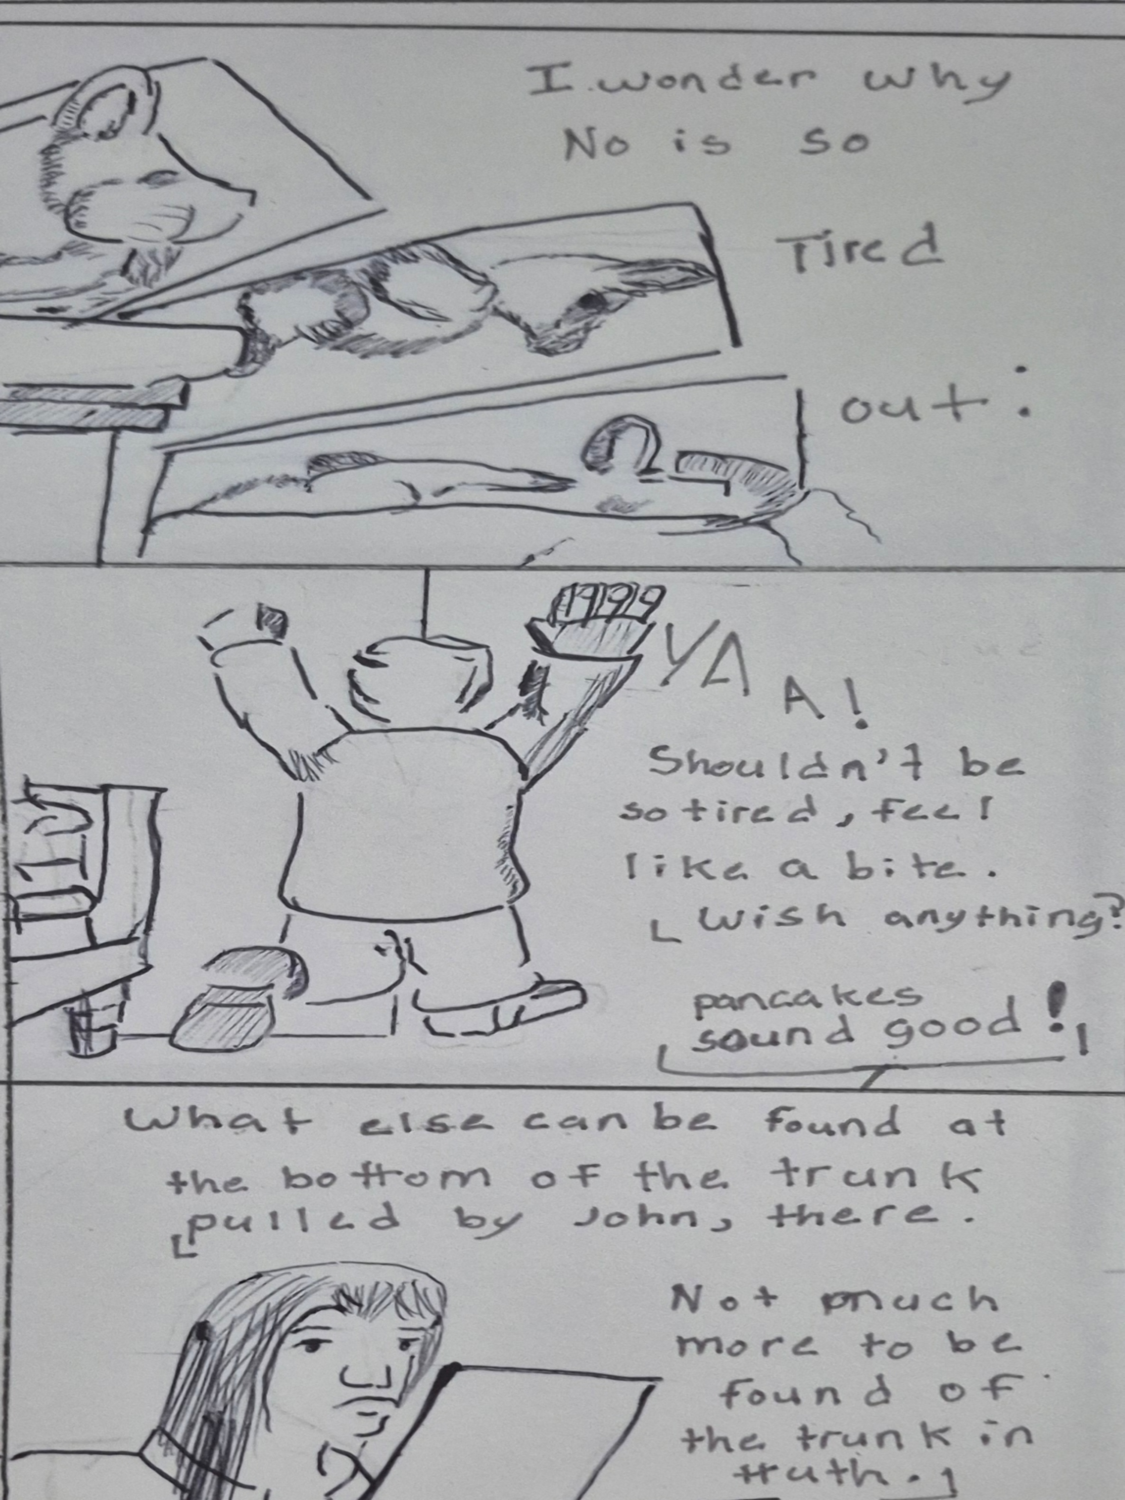 I wonder why
No is so
Tired
out:
1999
YAA!
Shouldn't be
so tired, feel
like a bite.
Wish anything?
pancakes
sound good!
What else can be found at
the bottom of the trunk
pulled by John, there.
Not much
more to be
found of
the trunk in
truth.